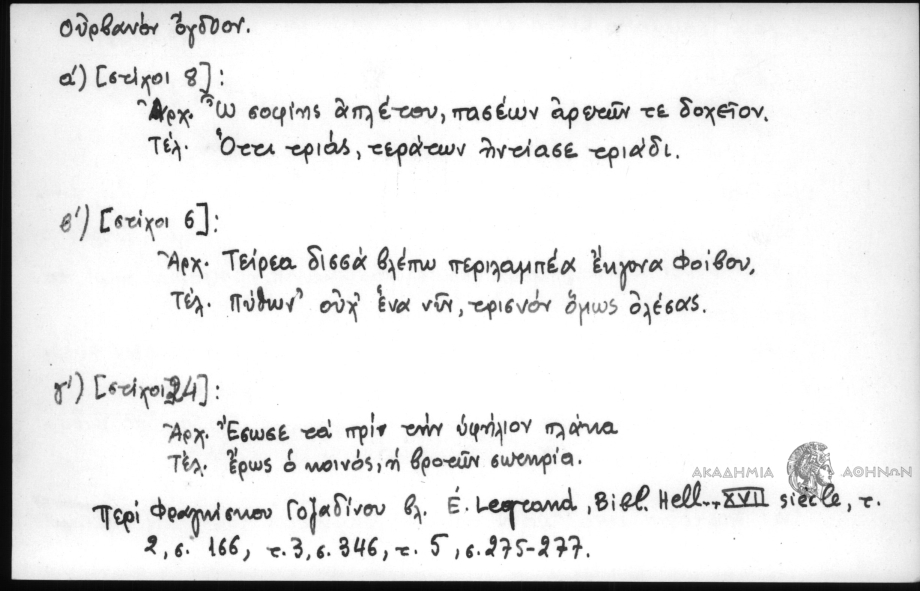 Οὐρβανὸν ὄγδοον.
α´) [στίχοι 8]:
Ἀρχ. Ὦ σοφίης ἀπλέτου, πασέων ἀρετῶν τε δοχεῖον.
Τέλ. Ὅττι τριάς, τεράτων ἠντίασε τριάδι.
β´) [στίχοι 6]:
Ἀρχ. Τείρεα δισσὰ βλέπω περιλαμπέα ἔκγονα Φοίβου,
Τέλ. Πύθων' οὐχ' ἕνα νῦν, τρισνὸν ὅμως ὀλέσας.
γ´) [στίχοι 24]:
Ἀρχ. Ἔσωσε τὰ πρὶν τὴν ὑφήλιον πλάκα
Τέλ. ἔρως ὁ κοινός, ἡ βροτῶν σωτηρία.
ΑΚΑΔΗΜΙΑ ΑΘΗΝΩΝ
Περὶ Φραγκίσκου Γοζαδίνου βλ. É. Legrand, Bibl. Hell., XVII siècle, τ.
2, σ. 166, τ. 3, σ. 346, τ. 5, σ. 275-277.